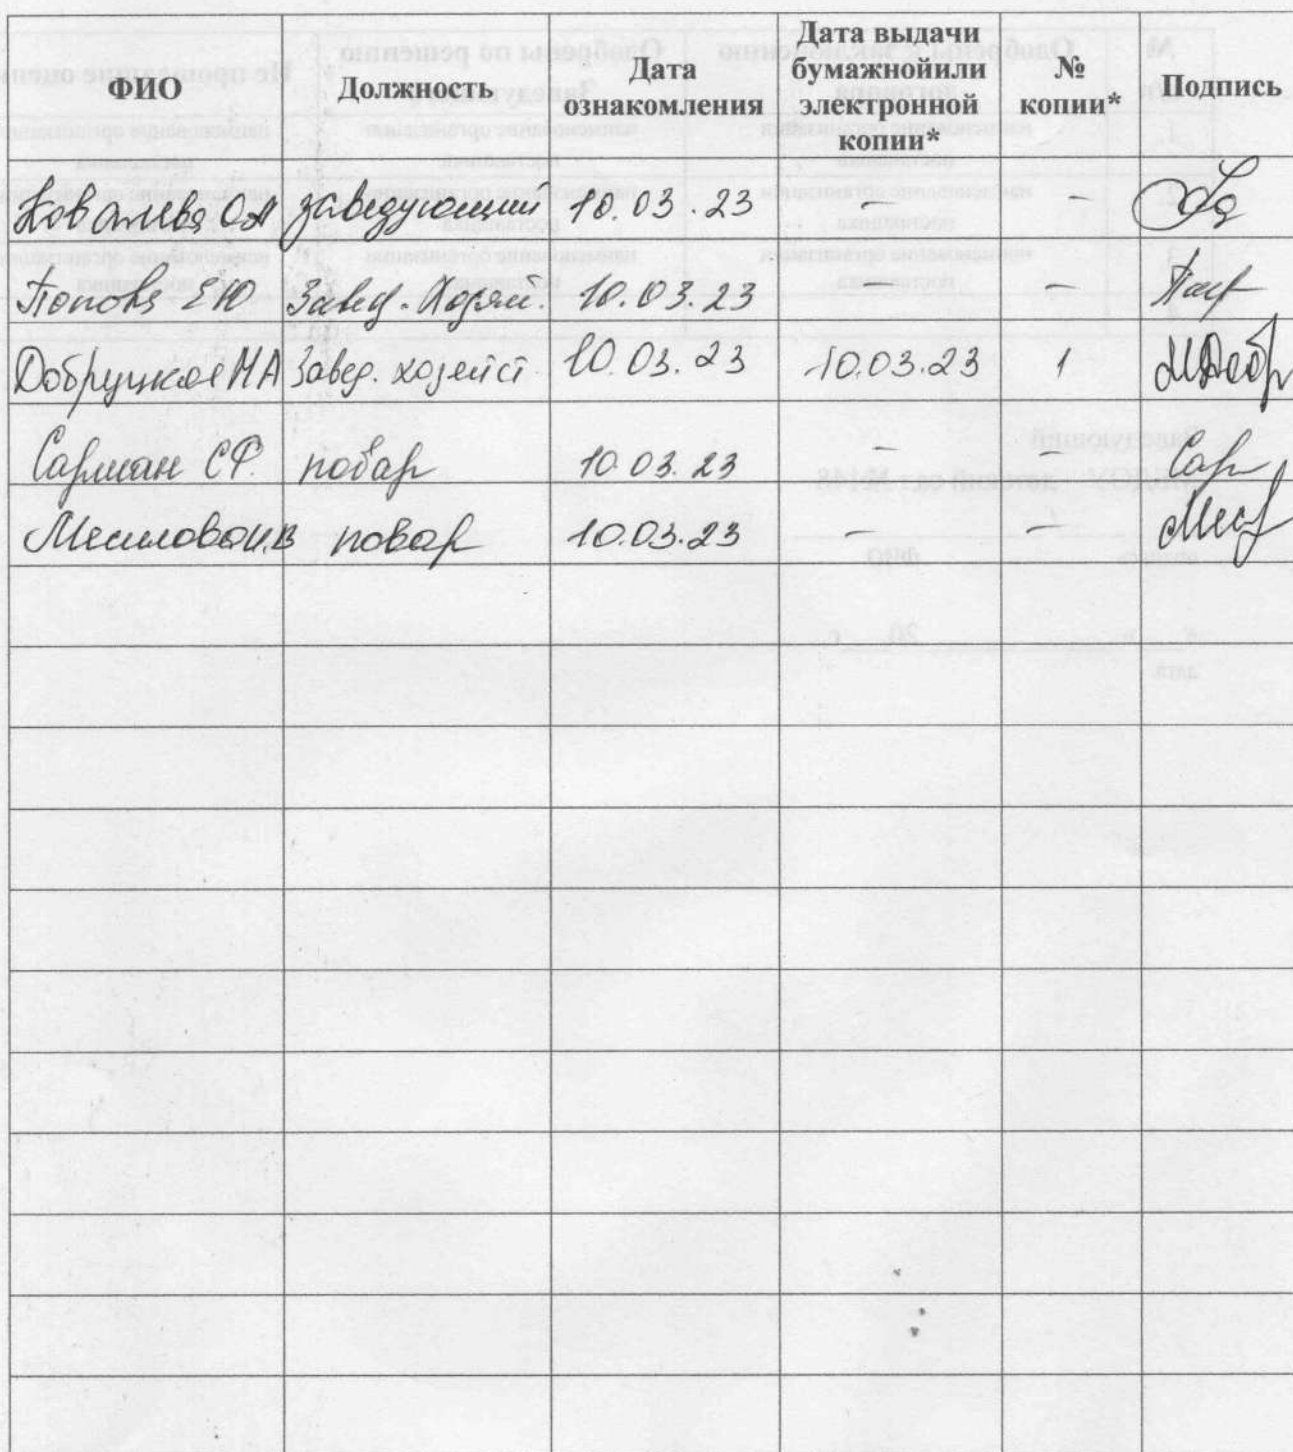 ФИО Должность Дата ознакомления Дата выдачи бумажнойили электронной копии* № копии* Подпись
Ковалева ОА заведующий 10.03.23 — -
Попова ЕЮ Завед. Хозяй. 10.03.23 — —
Добруцкая МА Завед. хозяйст 10.03.23 10.03.23 1
Сарман СФ. повар 10.03.23 — –
повар 10.03.23 — —